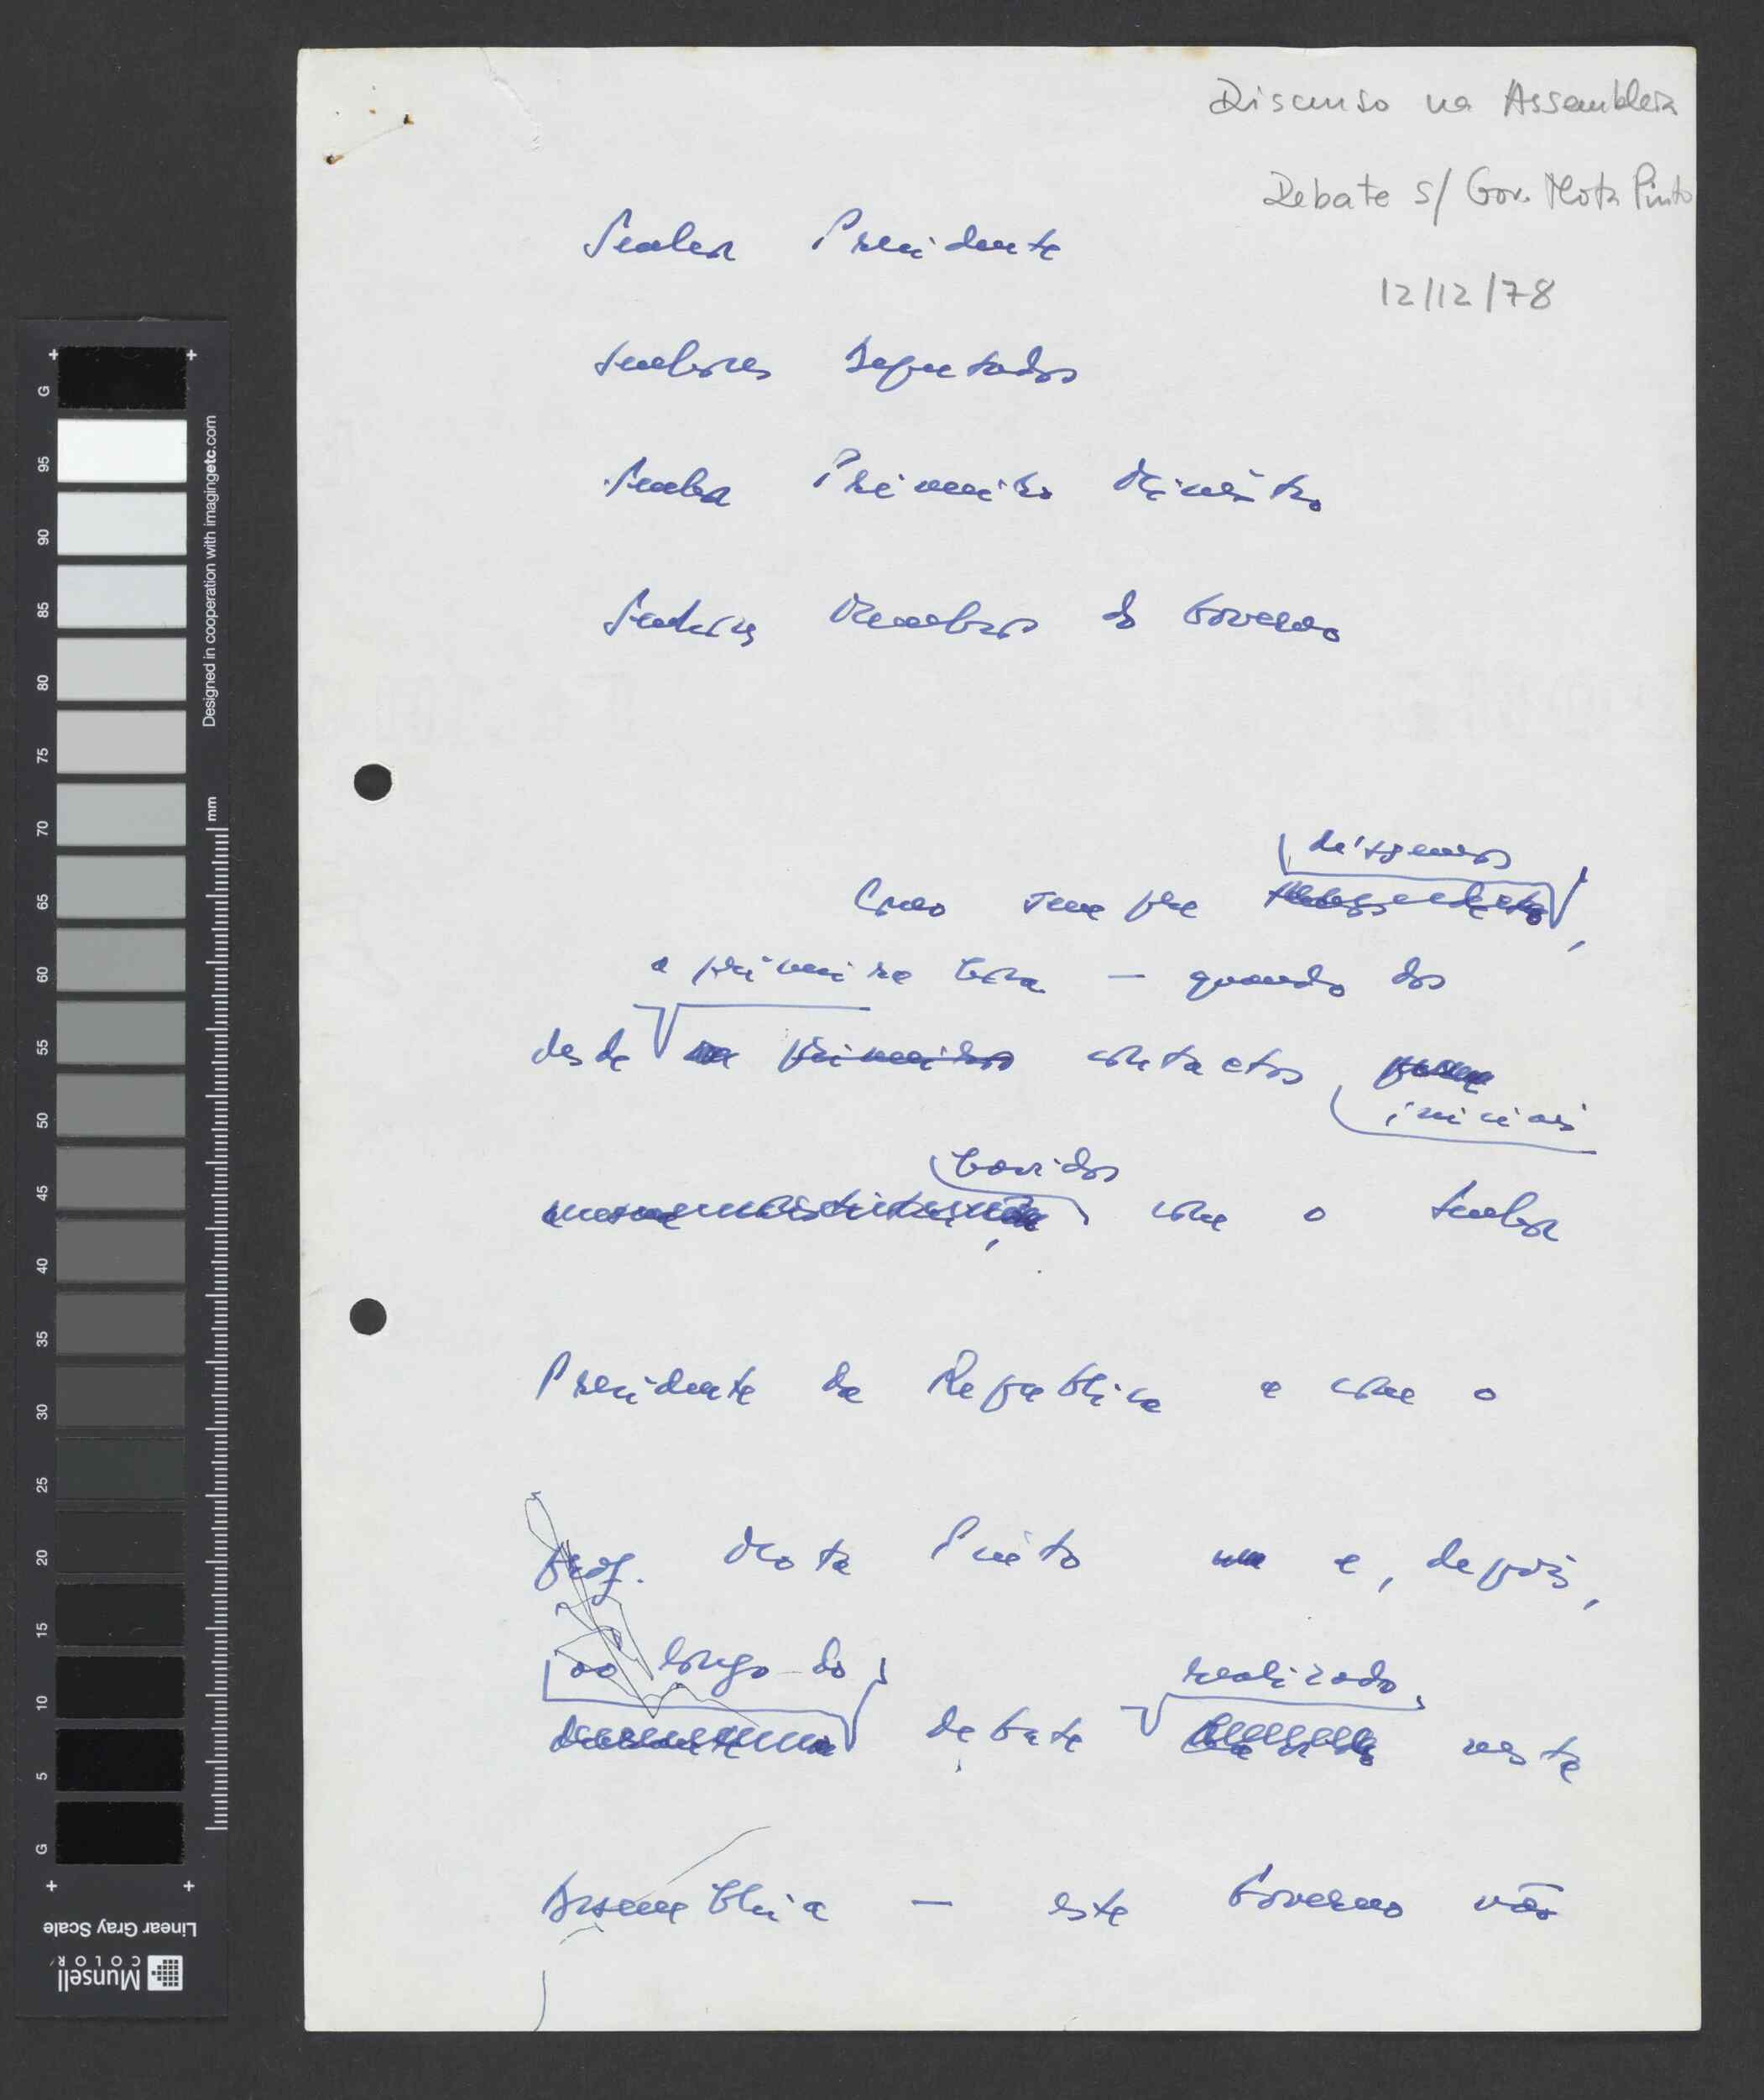 Discurso na Assembleia
Debate s/ Gov. Mota Pinto
12/12/78
Senhor Presidente
Senhores Deputados
Senhor Primeiro Ministro
Senhores Membros do Governo
dissemos
Como sempre
a primeira hora — quando dos
desde primeiros contactos
iniciais
havidos
com o Senhor
Presidente da República e com o
Prof. Mota Pinto e, depois,
ao longo do realizado,
debate nesta
Assembleia — este Governo não
G
95
90
85
80
75
70
65
60
55
50
45
40
35
30
25
20
15
10
5
G
mm
Designed in cooperation with imagingetc.com
Linear Gray Scale
Munsell
COLOR